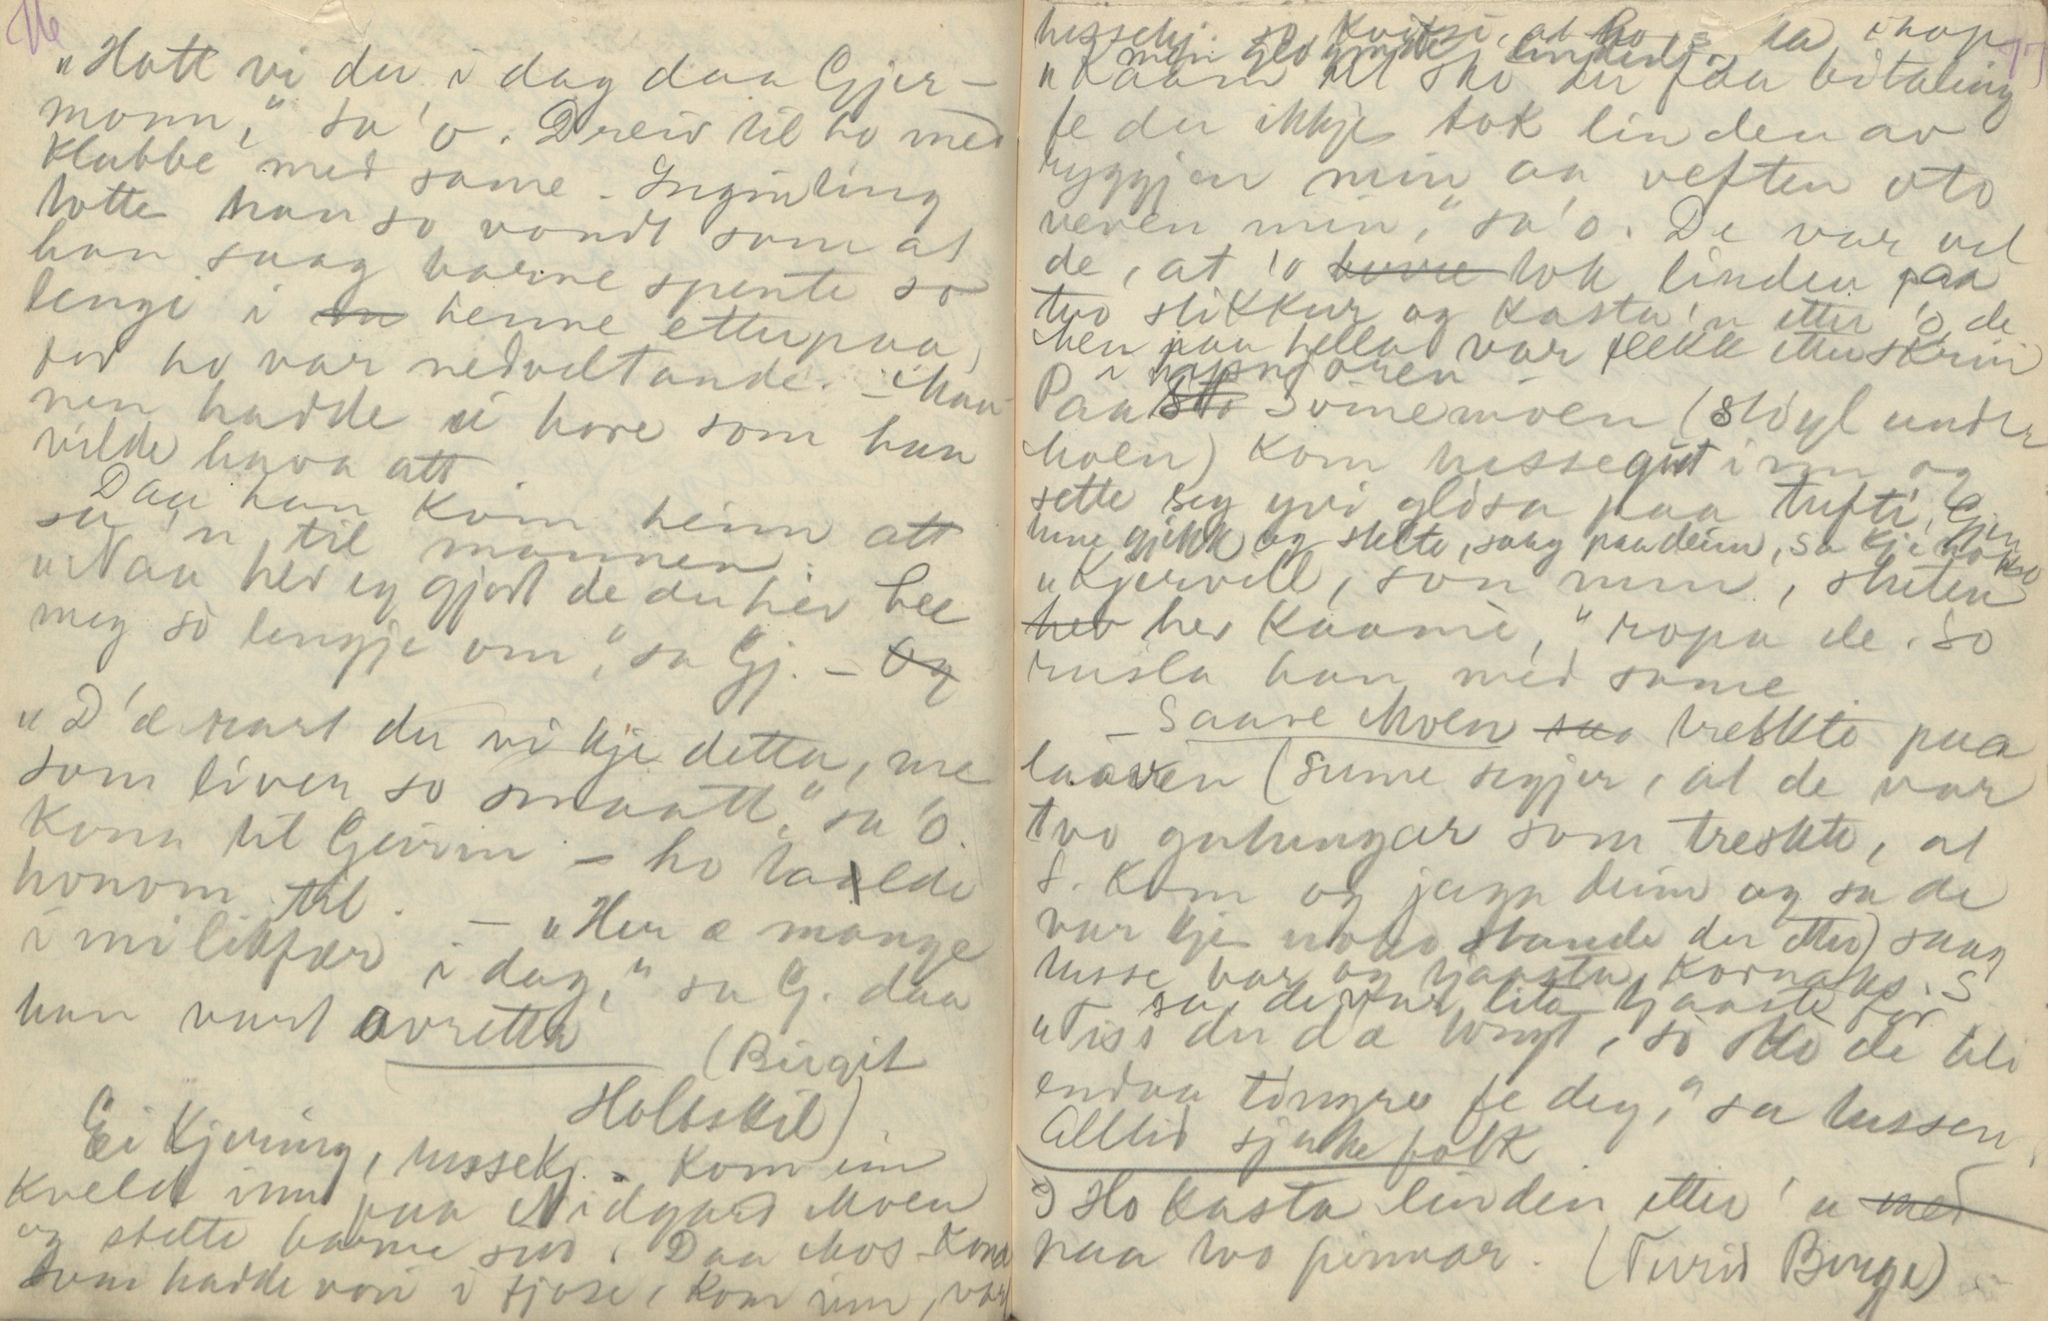 "Hott vi du i dag daa Gjer-
monn," sa 'o. Dreiv til ho med
klubbe med same - Ingin ting
totte han so vondt som at
han saag barne spente so
lengi i henne etterpaa,
ho var nedveltande. - Man-
nen hadde ei hore som han
vilde hava att
Daa han kom heim att
sa 'n til mannen:
"Naa hev eg gjort de du hev bee
meg so lengje om," sa Gj. - Og
"D'æ rart du vi kje detta, me
som liver so smaatt," sa 'o
Kona til Geirin - ho taalde
honom til. - "Her æ mange
i mi likfær i dag," sa G. daa
han vart avretta
(Birgit
Holtskil)
Ei kjering, tussekj. - kom ein
kveld inn paa Nidgard Moen
og stelte barne sitt. Daa Mos-Kona
som hadde vori i fjose, kom inn, var
tussekj. so kvitsi, at ho ihop
"Kaam til sko du faa bitaling
fe du ikkje tok linden av
ryggjen min aa veften uto
veven min," sa 'o. De var vel
de, at 'o tok linden paa
two stikkur og kasta 'n etter 'o, de
hen paa hella var flekk etter skrin
i
Paa Sømemoen (Støyl under
Moen) kom tussegut inn og
sette seg yvi glosa paa tufti,
gjekk og stelte, saag paa deim, sa kje noko
"Kjervill, son min, sluten
hev hev Kaame," ropa de. So
rusla han med same
- Saave Moen treskte paa
laaven (Sume segjer, at de var
two gutungar som treskte, at
S. kom og jaga deim og sa de
var kje noko stande der etter) saag
tusse bar og kornaks. S
sa, de var lita for
"Tiss du d'æ tongt, so sko de bli
endaa tongre fe deg," sa tussen
Alltid sjuke folk
Ho kasta linden etter 'n med
paa two pinnar. (Turid Berge)